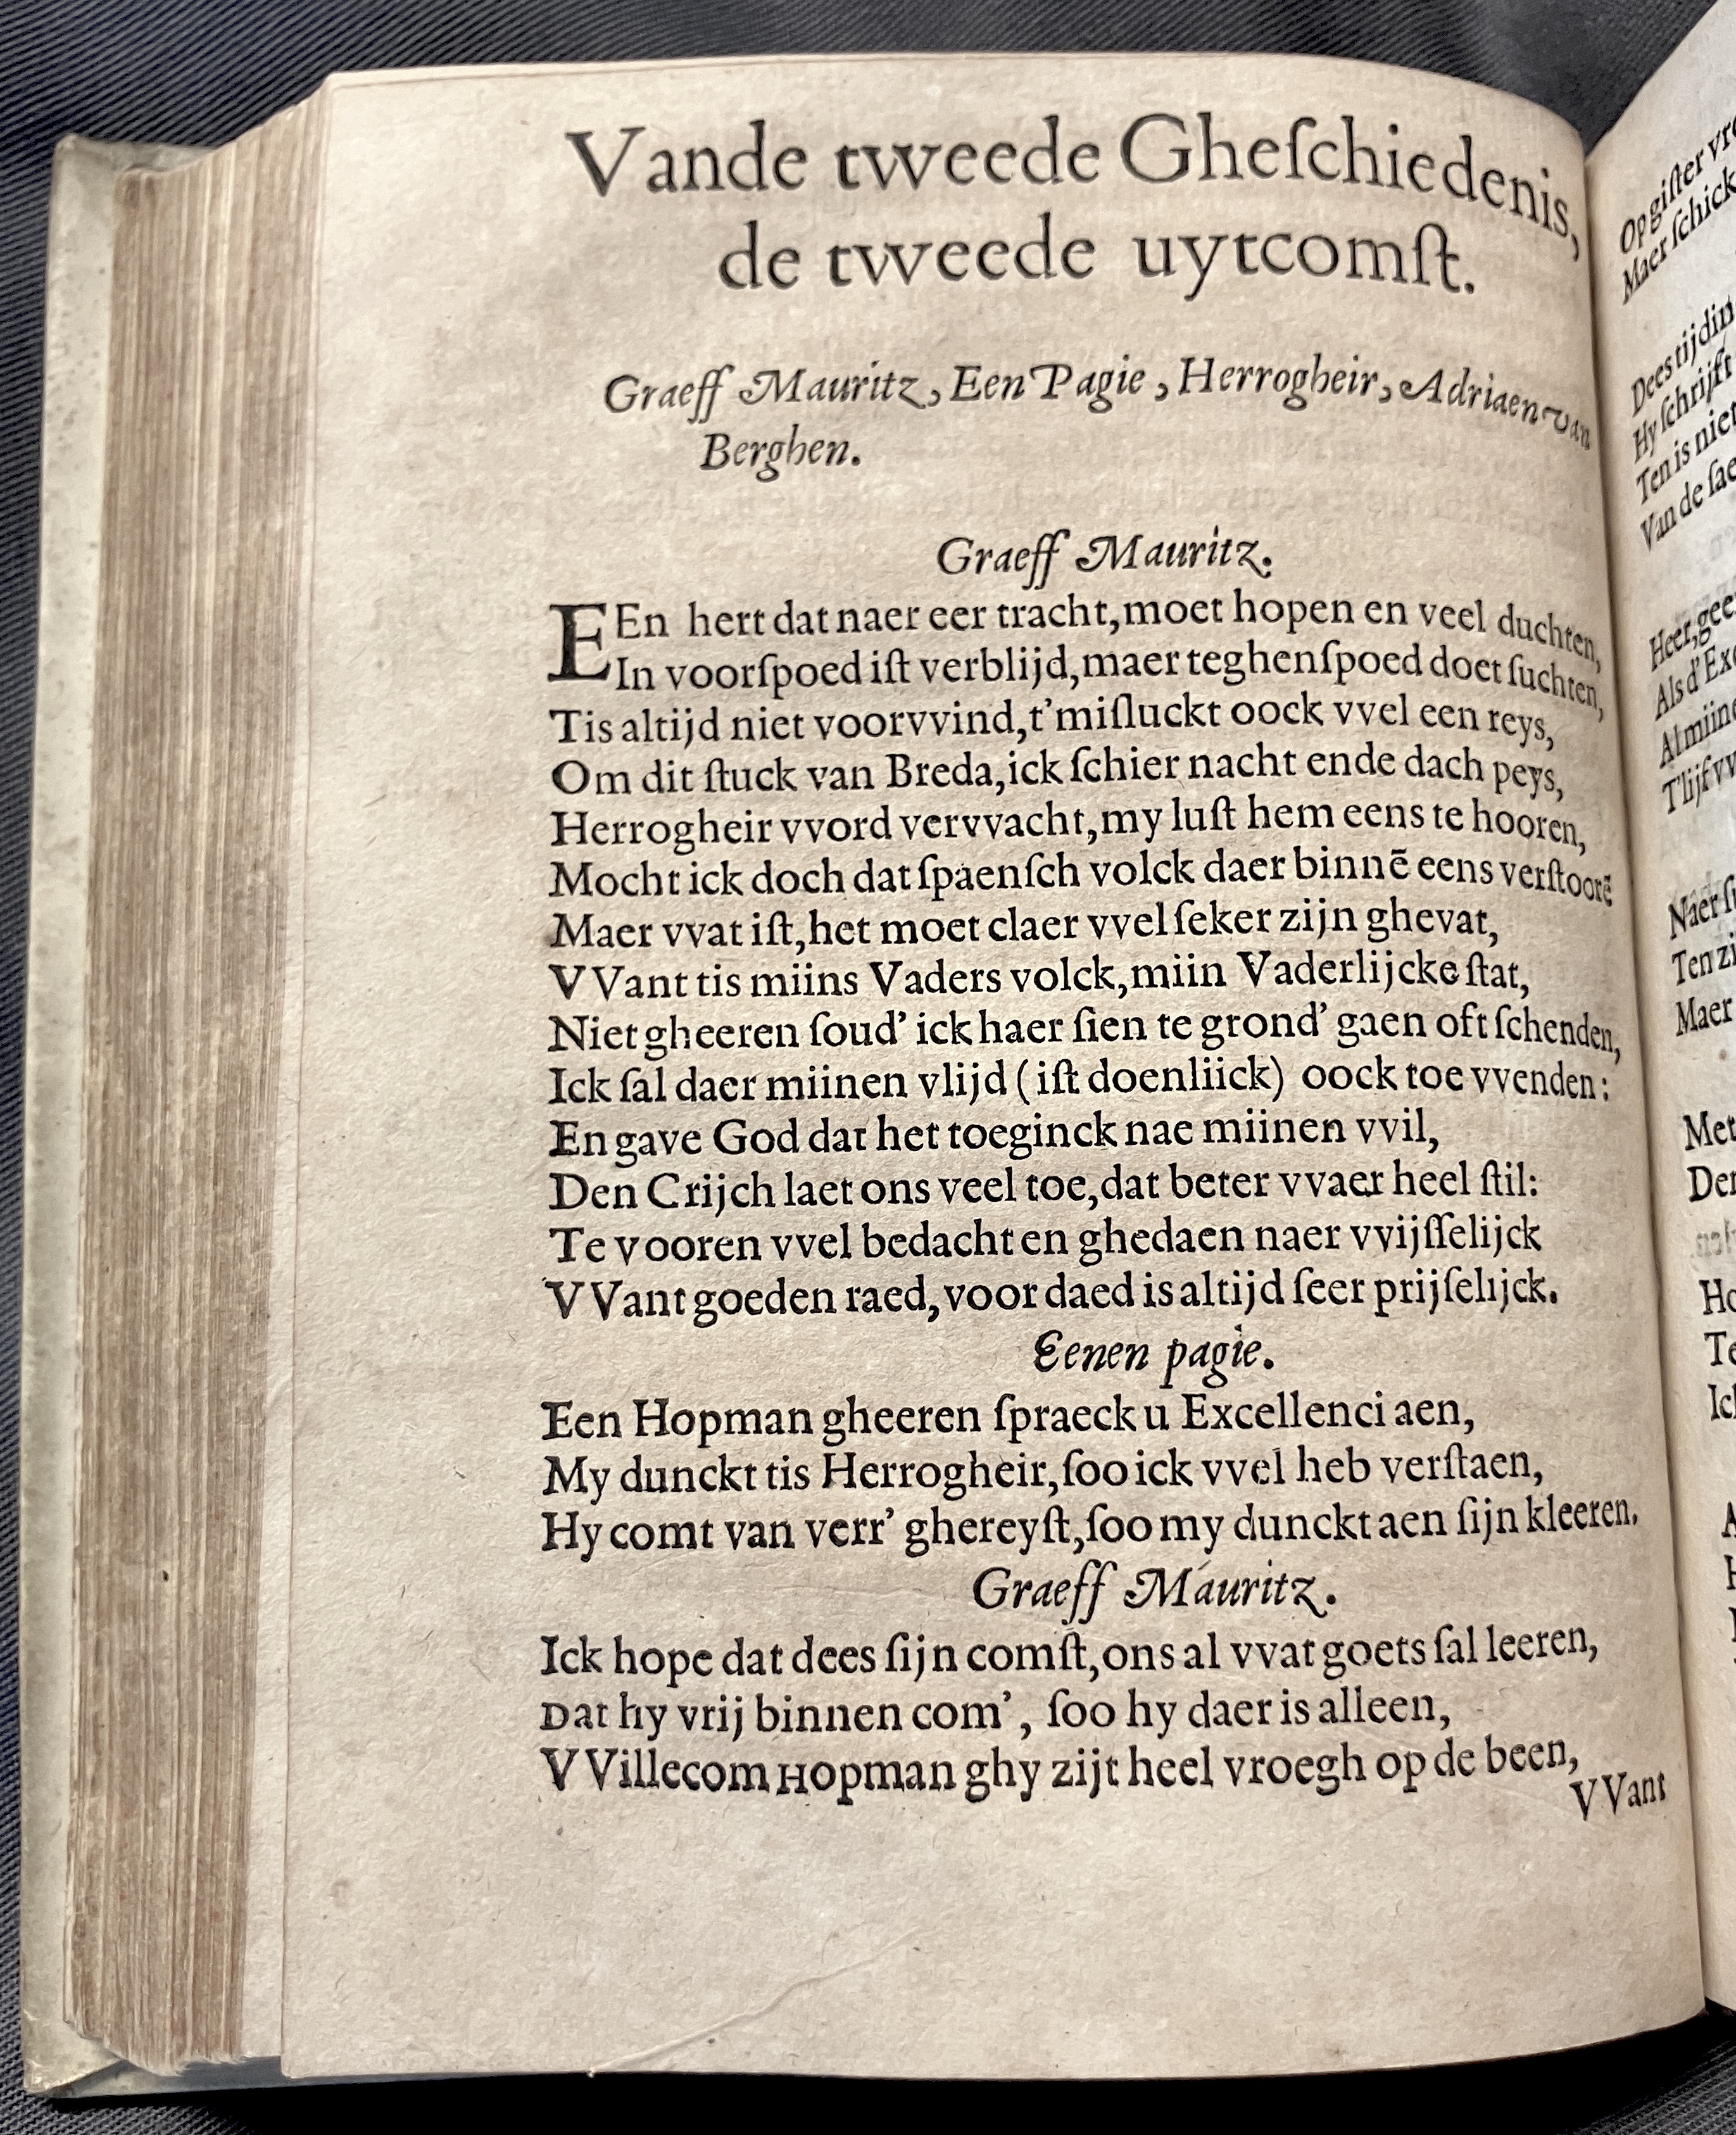 Vande tweede Gheſchiedenis,
de tweede uytcomſt.
Graeff Mauritz, Een Pagie, Herrogheir, Adriaen van
Berghen.
Graeff Mauritz.
EEn hert dat naer eer tracht, moet hopen en veel duchten,
In voorſpoed iſt verblijd, maer teghenſpoed doet ſuchten,
Tis altijd niet voorvvind, t'miſluckt oock vvel een reys,
Om dit ſtuck van Breda, ick ſchier nacht ende dach peys,
Herrogheir vvord vervvacht, my luſt hem eens te hooren,
Mocht ick doch dat ſpaenſch volck daer binnē eens verſtoorē
Maer vvat iſt, het moet claer vvel ſeker zijn ghevat,
VVant tis miins Vaders volck, miin Vaderlijcke ſtat,
Niet gheeren ſoud' ick haer ſien te grond' gaen oft ſchenden,
Ick ſal daer miinen vlijd (iſt doenliick) oock toe vvenden:
En gave God dat het toeginck nae miinen vvil,
Den Crijch laet ons veel toe, dat beter vvaer heel ſtil:
Te vooren vvel bedacht en ghedaen naer vvijſſelijck
VVant goeden raed, voor daed is altijd ſeer prijſelijck.
Eenen pagie.
Een Hopman gheeren ſpraeck u Excellenci aen,
My dunckt tis Herrogheir, ſoo ick vvel heb verſtaen,
Hy comt van verr' ghereyſt, ſoo my dunckt aen ſijn kleeren.
Graeff Mauritz.
Ick hope dat dees ſijn comſt, ons al vvat goets ſal leeren,
Dat hy vrij binnen com', ſoo hy daer is alleen,
VVillecom Hopman ghy zijt heel vroegh op de been,
VVant
Op giſter
Maer ſchick
Dees tijdin
Hy ſchrijft
Ten is niet
Van de ſae
Heer, gee
Als d'Exc
Al miine
T'lijf vv
Naer
Ten zi
Maer
Met
Der
Ho
Te
Ick